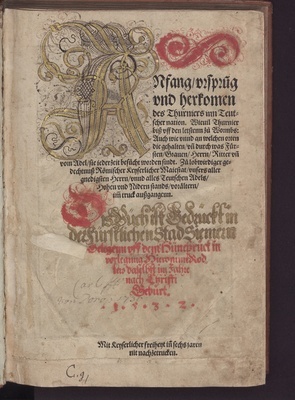 ANfang/ vrsprūg
vnd herkomen
des Thurniers inn Teut
scher nation. Wieuil Thurnier
biß vff den letstenn zů Wormbs:
Auch wie vnnd an welchen orten
die gehalten/ vñ durch was Für-
sten/ Grauen/ Herrn/ Ritter vñ
vom Adel/ sie iederzeit besůcht worden sindt. Zů lobwirdiger ge-
dechtnuß Römischer Keyserlicher Maiestat/ vnsers aller
gnedigsten Herrn/ vnnd alles Teutschen Adels/
Hohen vnd Nidern stands/ vorältern/
inn truck außgangenn.
Dis Bůch ist Gedruckt in
der Fürstlichen Stad Siemern
vff dem Hunsruck in
verlegung Hieronimi Rod
lers daselbst im Jahre
nach Christi
Geburt.
1 5 3 2
Mit Keyserlicher freiheyt inn sechs jaren
nit nachzetrucken.